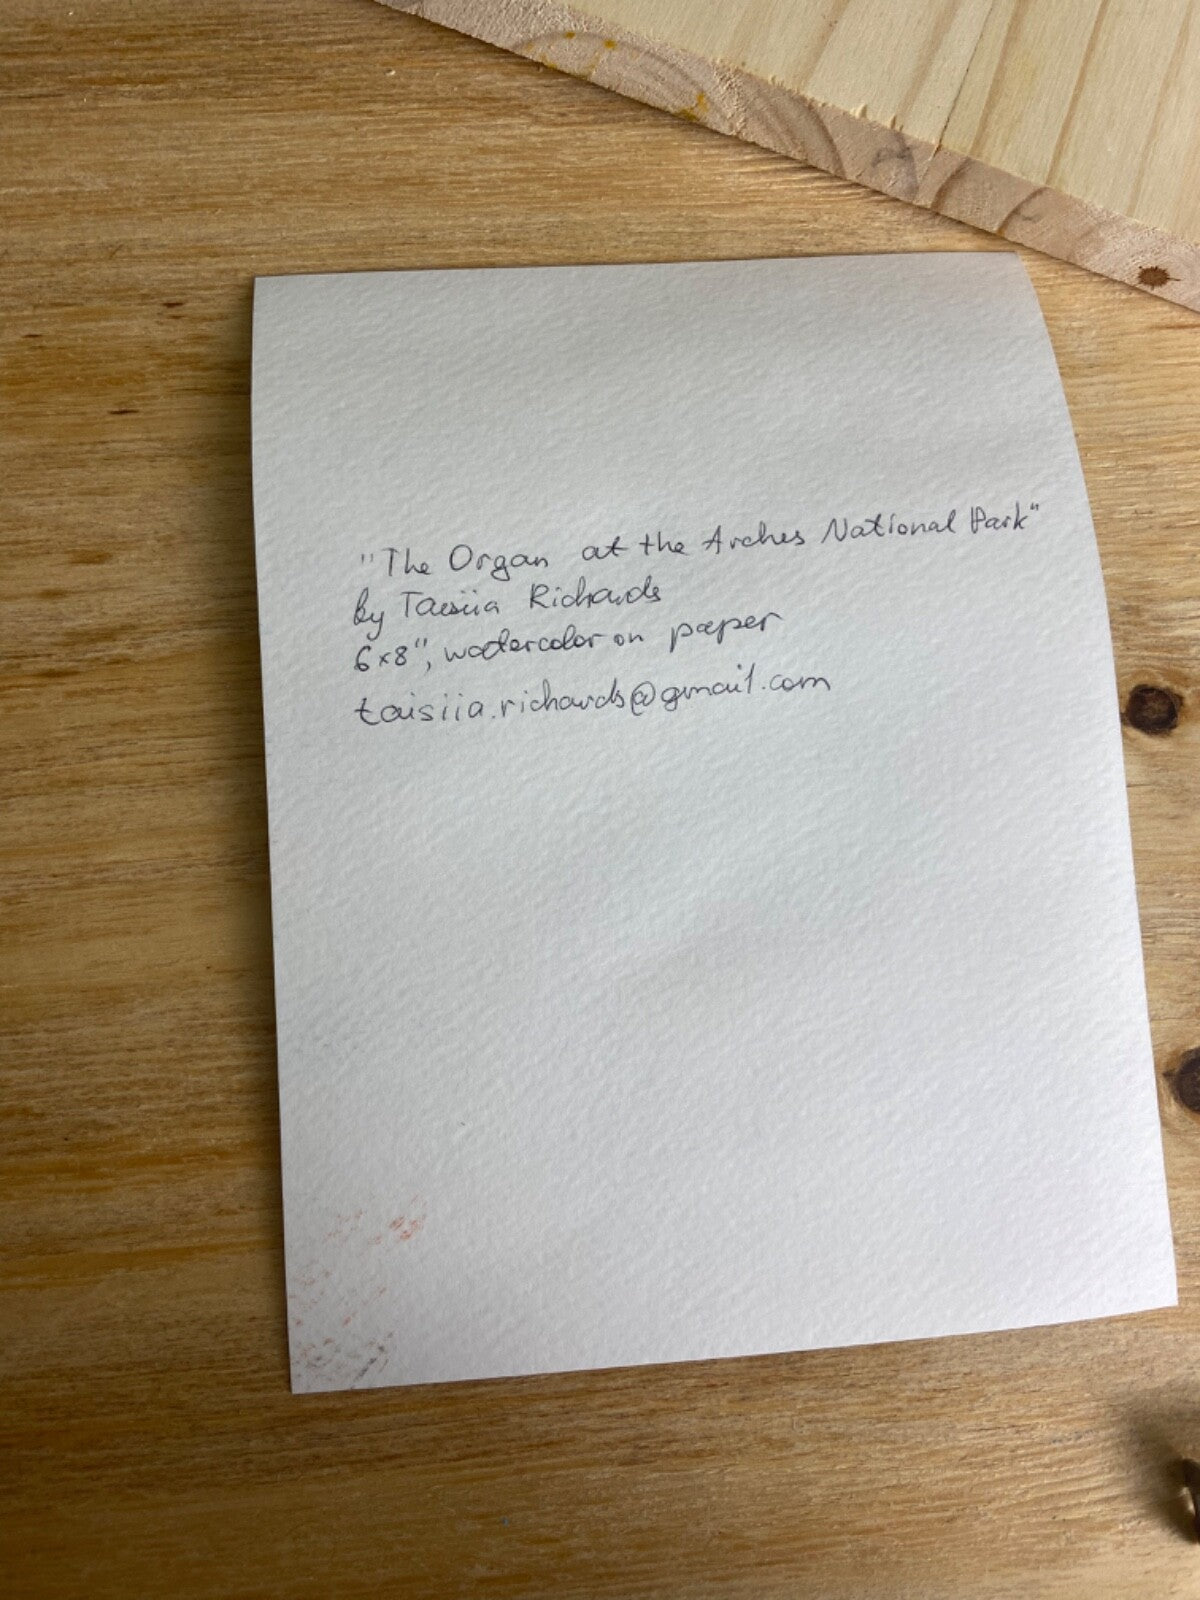 "The Organ at the Arches National Park"
by Taisiia Richards
6×8", watercolor on paper
taisiia.richards@gmail.com